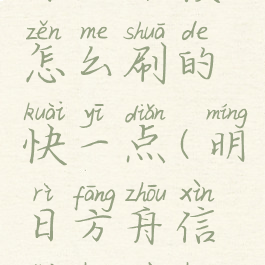 zěn me shuā de
怎么刷的
kuài yī diǎn míng
快一点(明
rì fāng zhōu xìn
日方舟信